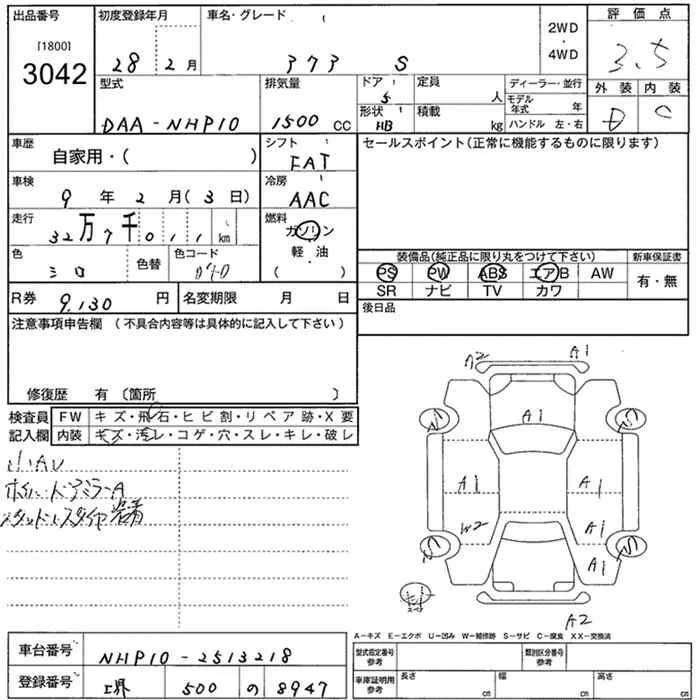 出品番号
[1800]
3042
初度登録年月
28年2月
車名・グレード
373 S
2WD
・
4WD
評価点
3.5
外装 内装
D C
型式
DAA-NHP10
排気量
1500 CC
ドア
5
形状
HB
定員
人
積載
kg
ディーラー・並行
モデル年式 年
ハンドル 左・右
車歴
自家用・( )
シフト
FAT
セールスポイント(正常に機能するものに限ります)
車検
9年2月(3日)
冷房
AAC
走行
32万7千011km
燃料
ガソリン
軽油
・
( )
色
シロ
色替
色コード
装備品(純正品に限り丸をつけて下さい)
PS PW ABS エアB AW
SR ナビ TV カワ
新車保証書
有・無
R券 9,130円
名変期限 月 日
後日品
注意事項申告欄(不具合内容等は具体的に記入して下さい)
修復歴 有 〔箇所 〕
検査員記入欄
FW キズ・飛石・ヒビ割・リペア跡・X要
内装 キズ・汚レ・コゲ・穴・スレ・キレ・破レ
小AU
ホイル・ドアミラーA
スタッドレスタイヤ装着
A2 A1
A1
A1 A1
W2 A1
A1
A2
A-キズ E-エクボ U-凹み W-補修跡 S-サビ C-腐食 XX-交換済
車台番号 NHP10-2513218
登録番号 堺 500 の 8947
型式指定番号
参考
類別区分番号
参考
車庫証明用
参考
長さ cm 幅 cm 高さ cm